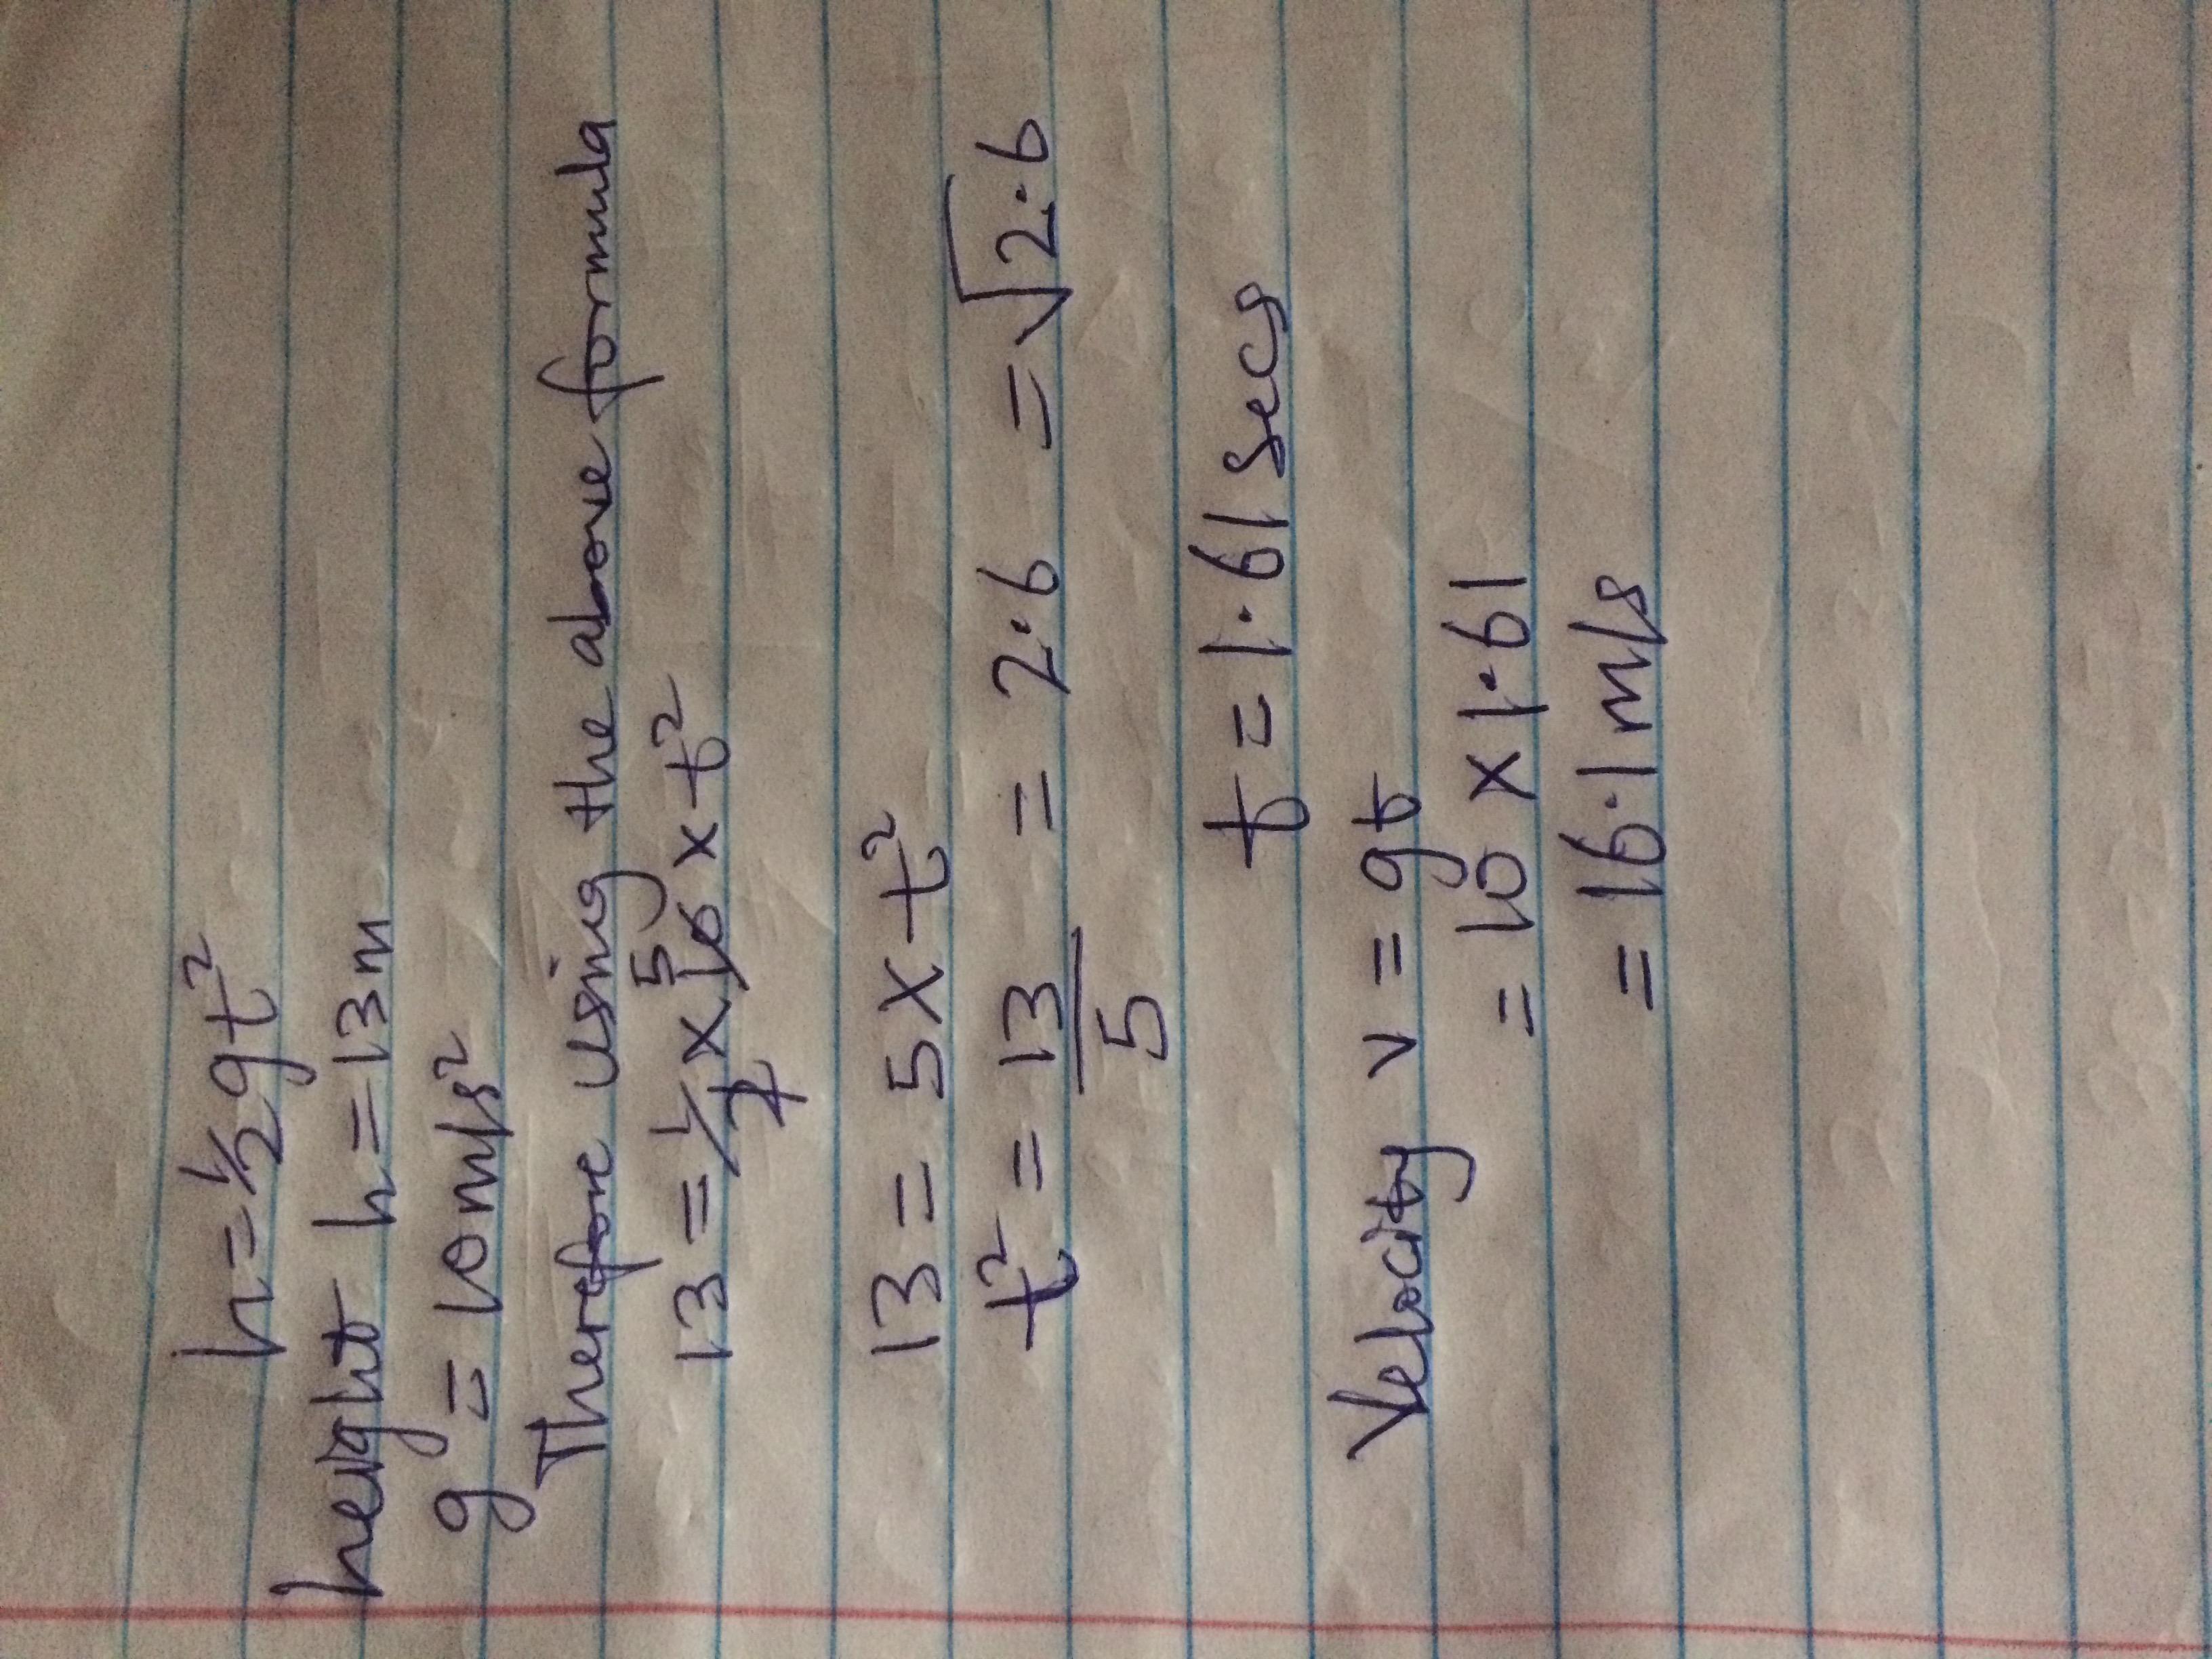 h = ½gt²
height h = 13m
g = 10m/s²
Therefore using the above formula
13 = 1/2 x 10 5 x t²
13 = 5 x t²
t² = 13/5 = 2.6 = √2.6
t = 1.61 secs
Velocity v = gt
= 10 x 1.61
= 16.1 m/s